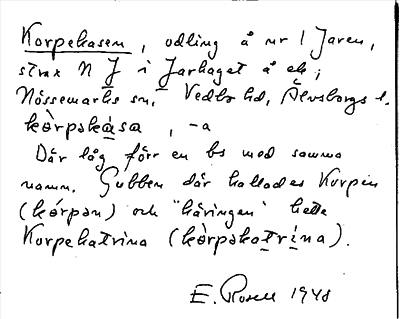 Korpekasen, odling å nr 1 Jaren,
strax N J i Jarhaget å ek;
Nössemarks sn, Vedbo hd, Älvsborgs l.
kòrpəkàsa, -a
Där låg förr en bs med samma
namn. Gubben där kallades Korpen
(kórpən) och "käringen" hette
Korpekatrina (kòrpəkatrína).
E. Rosell 1948